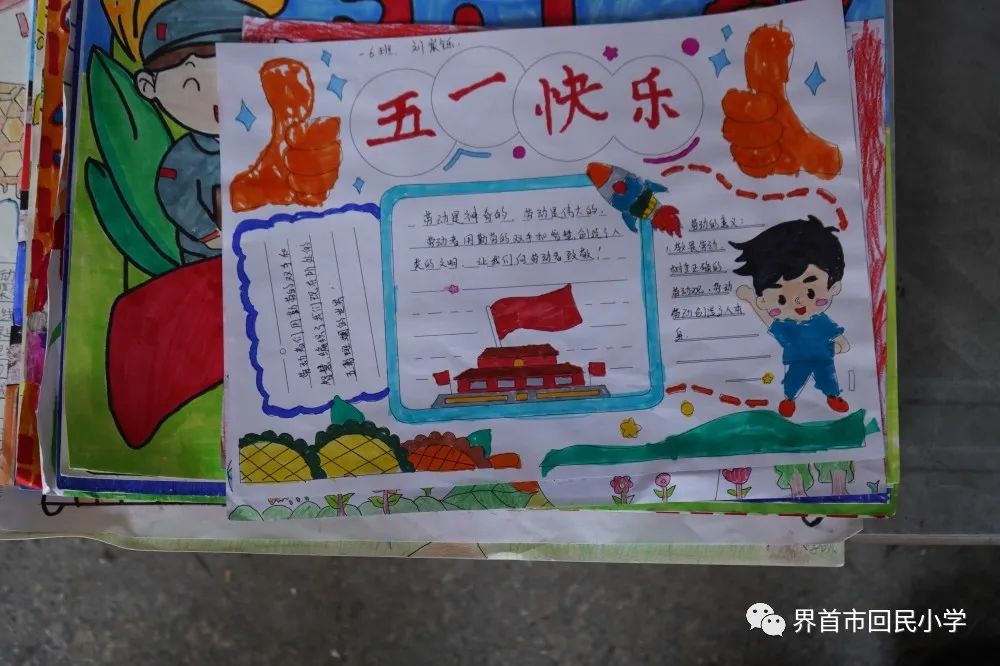 一6班
五一快乐
劳动是神奇的 劳动是伟大的.
劳动者用勤劳的双手和智慧,创造了人
类的文明. 让我们向劳动者致敬!
劳动者们用勤劳的双手和
智慧,编织了我们现在所处的
五彩斑斓的世界。
劳动的意义:
劳动
树立正确的
劳动观.
劳动创造了人
界首市回民小学